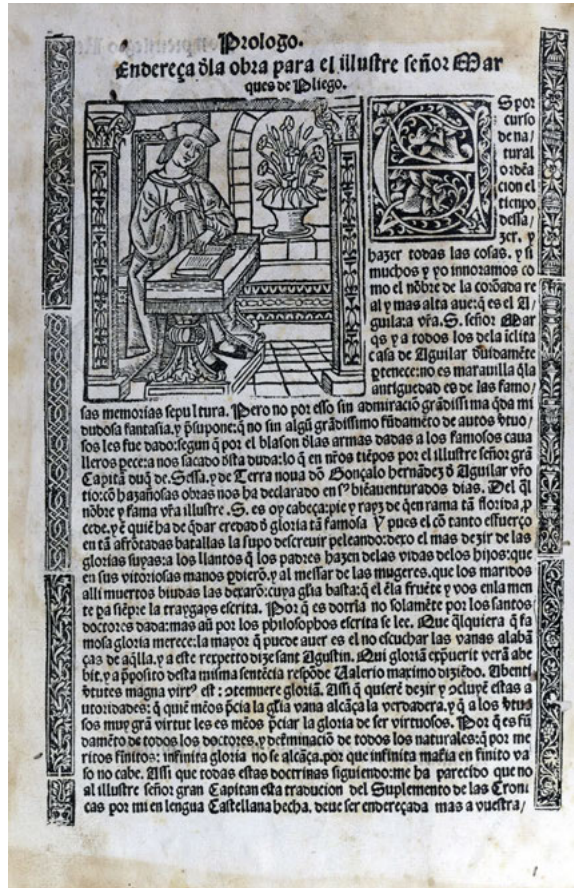 Prologo.
Endereça dla obra para el illustre señor Mar
ques de Pliego.
ES por
curso
de na/
tural
ordẽa
cion el
tienpo
dessa/
zer, y
hazer todas las cosas. y si
muchos y yo innoramos co
mo el nõbre de la corõada re
al y mas alta aue:q̃ es el A/
guila:a vr̃a. S. señor Mar
q̃s y a todos los dela iclita
casa de Aguilar diuidamẽte
ptenece:no es marauilla q̃la
antiguedad es de las famo/
sas memorias sepultura. Pero no por esso sin admiraciõ grãdissima q̃da mi
dudosa fantasia.y p̃supone:q̃ no sin algũ grãdissimo fũdamẽto de autos vtuo/
sos les fue dado:segun q̃ por el blason dlas armas dadas a los famosos caua
lleros pece:a nos sacado dsta duda:lo q̃ en nr̃os tiẽpos por el illustre señor grã
Capitã duq̃ de.Sessa.y de Terra noua dõ Gonçalo hernãdez d Aguilar vr̃o
tio:cõ hazañosas obras nos ha declarado en sꝰ biẽauenturados dias. Del q̃l
nõbre y fama vr̃a illustre. S. es oy cabeça:pie y rayz de q̃en rama tã florida,p
cede.y ẽ quiẽ ha de q̃dar credad d gloria tã famosa Y pues el cõ tanto esfuerço
en tã afrõtadas batallas la supo descreuir peleando:dexo el mas dezir de las
glorias suyas:a los llantos q̃ los padres hazen delas vidas delos hijos:que
en sus vitoriosas manos pdierõ.y al messar de las mugeres.que los maridos
alli muertos biudas las dexarõ:cuya gl̃ia basta:q̃ el ẽla fruẽte y vos enla men
te pa siẽpre la traygays escrita. Por q̃ es dotrĩa no solamẽte por los santos
doctores dada:mas aũ por los philosophos escrita se lee. Que q̃lquiera q̃ fa
mosa gloria merece:la mayor q̃ puede auer es el no escuchar las vanas alabã
ças de aq̃lla.y a este respetto dize sant Agustin. Qui gloriã cxpuerit verã abe
bit.y a pposito desta misma sentẽcia respõde Ualerio maximo diziẽdo. Abenti
vtutes magna virtꝰ est : otemnere gloriã. Assi q̃ quierẽ dezir y ocluyẽ estas a
utoridades: q̃ quiẽ mẽos pcia la gl̃ia vana alcãça la verdadera.y q̃ a los vtuo
sos muy grã virtut les es mẽos pciar la gloria de ser virtuosos. Por q̃ es fũ
damẽto de todos los doctores.y detminaciõ de todos los naturales:q̃ por me
ritos finitos: infinita gloria no se alcãça.por que infinita mat̃ia en finito va
so no cabe. Assi que todas estas doctrinas siguiendo:me ha parecido que no
al illustre señor gran Capitan esta traducion del Suplemento de las Croni
cas por mi en lengua Castellana hecha, deue ser endereçada mas a vuestra/